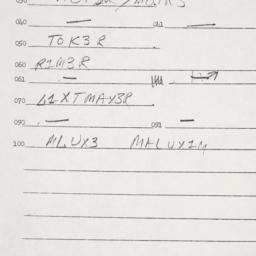 040 — 041 —
050 TOK3R
060 R1M3R
061 —
070 41XTMAY3R
090 — 091 —
100 MLUX3 MALUX1M